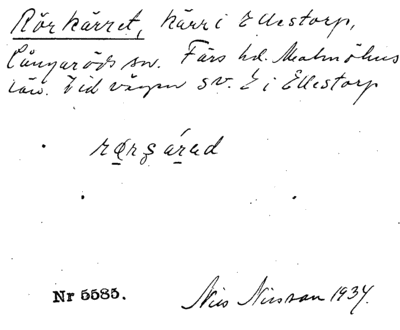 Rörkärret, kärr i Ellestorp,
Långaröds sn. Färs hd. Malmöhus
län. Vid vägen sv. E i Ellestorp
Nr 5585. Nils Nilsson 1934.